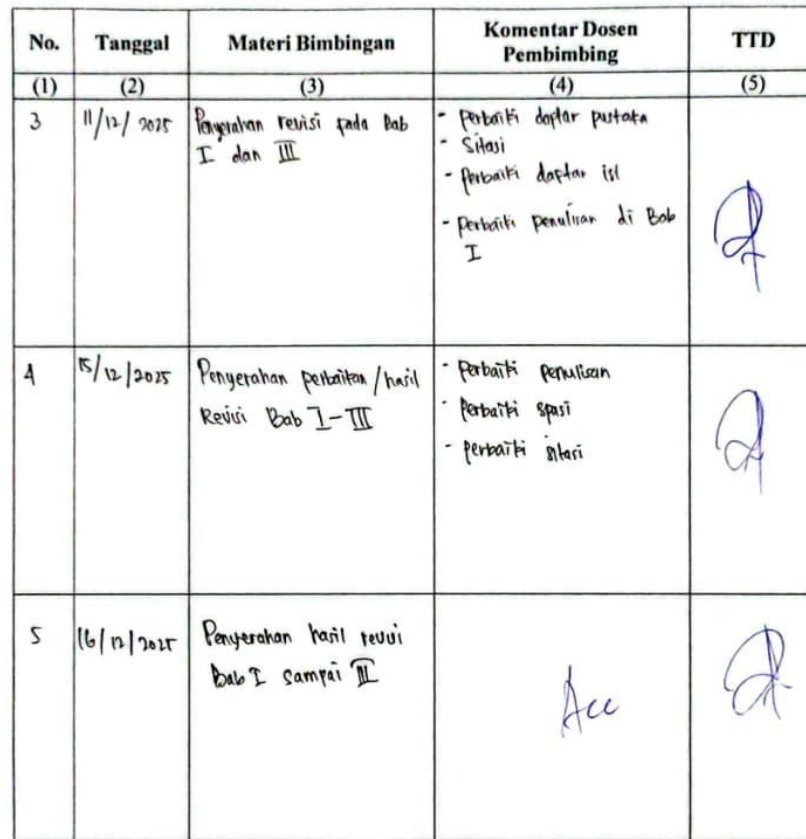 No. Tanggal Materi Bimbingan Komentar Dosen Pembimbing TTD
(1) (2) (3) (4) (5)
3 11/12/2025 Penyerahan revisi pada Bab
I dan III
- perbaiki daptar pustaka
- Sitasi
- perbaiki daptar isi
- perbaiki penulisan di Bab
I
4 15/12/2025 Penyerahan perbaikan/hasil
Revisi Bab I-III
- perbaiki penulisan
- perbaiki spasi
- perbaiki sitasi
5 16/12/2025 Penyerahan hasil revisi
Bab I sampai III
Acc